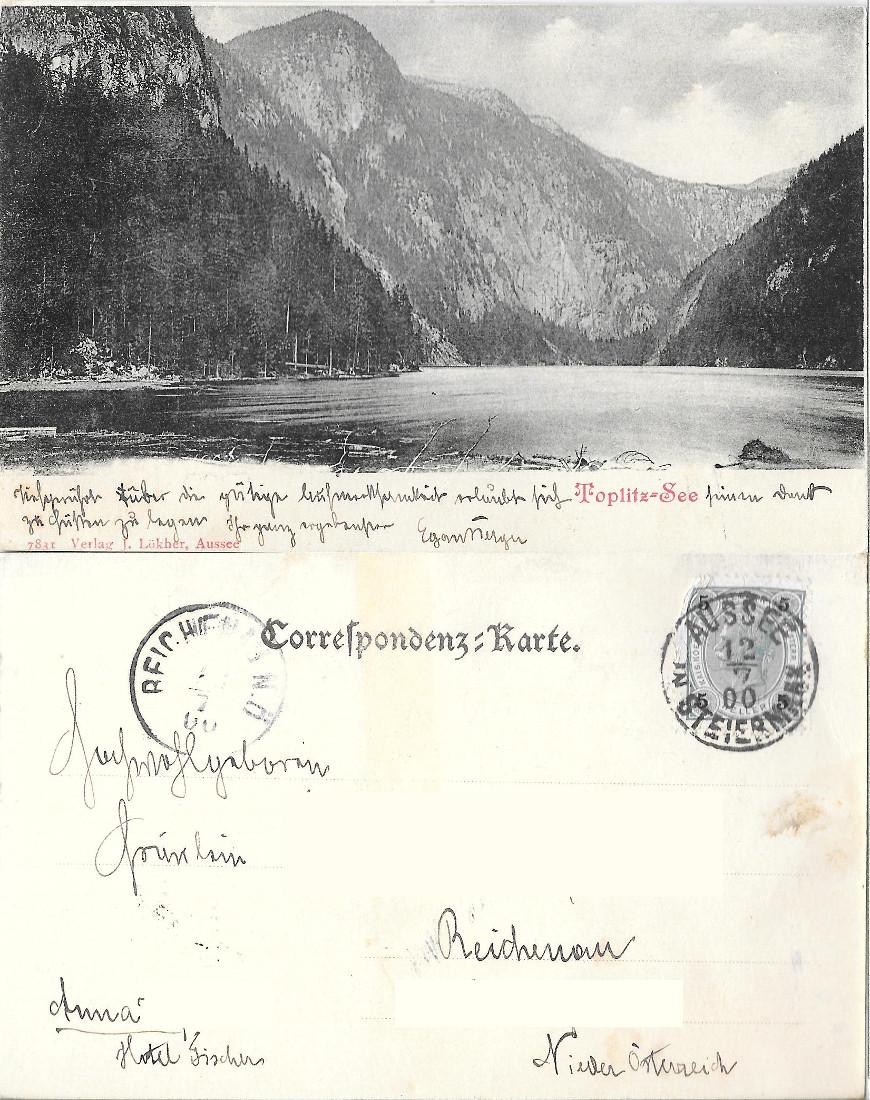 Tiefgerührt über die gütige Aufmerksamkeit erlaubt sich Toplitz-See seinen Dank
zu Füßen zu legen Ihr ganz ergebenster Egon Berger
7831 Verlag J. Lökher, Aussee
Correspondenz-Karte.
REICHENAU N.Ö
5 5
AUSSEE
12
7
00
5 5
IN STEIERMARK
Hochwohlgeboren
Fräulein
Reichenau
Anna
Hotel Fischer
Nieder Österreich